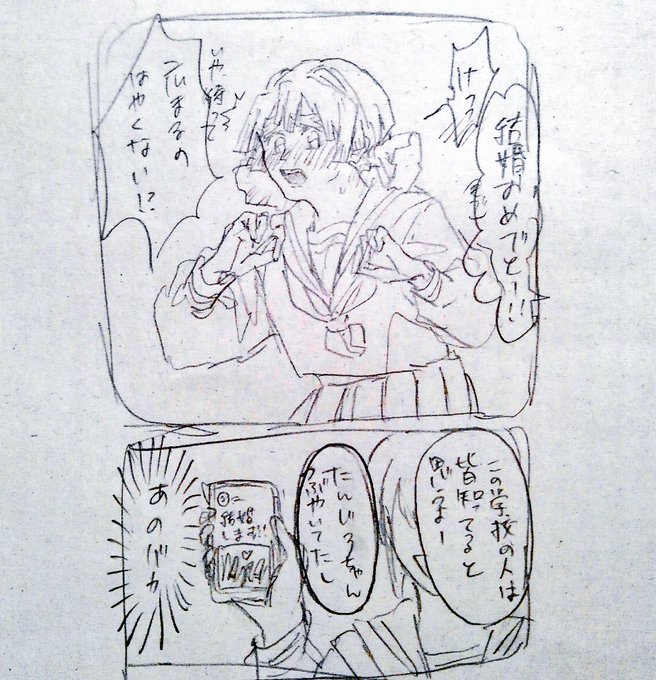 結婚おめでとー!!
いや待って
広まるの
はやくない!?
この学校の人は
皆知ってると
思うよー
たんじろちゃん
つぶやいてたし
結婚
します!!
あのバカ